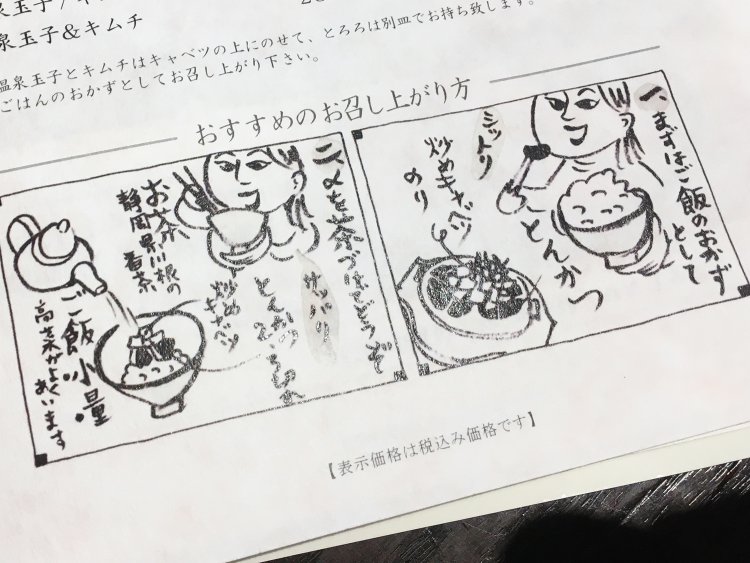 泉玉子&キムチ
温泉玉子とキムチはキャベツの上にのせて、とろろは別皿でお持ち致します。
ごはんのおかずとしてお召し上がり下さい。
おすすめのお召し上がり方
一、まずはご飯のおかず
として
とんかつ
ミットリ
炒めキャベツ
のり
二、〆を茶づけでどうぞ
サッパリ
とんかつ
炒め
キャベツ
お茶、川根の
静岡県
番茶
ご飯小量
高菜がよくあいます
【表示価格は税込み価格です】